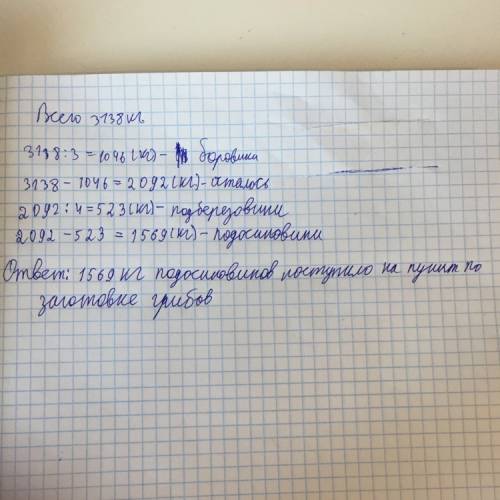 Всего 3138 кг
3138 : 3 = 1046 (кг) - боровики
3138 - 1046 = 2092 (кг) - осталось
2092 : 4 = 523 (кг) - подберезовики
2092 - 523 = 1569 (кг) - подосиновики
Ответ: 1569 кг подосиновиков поступило на пункт по
заготовке грибов